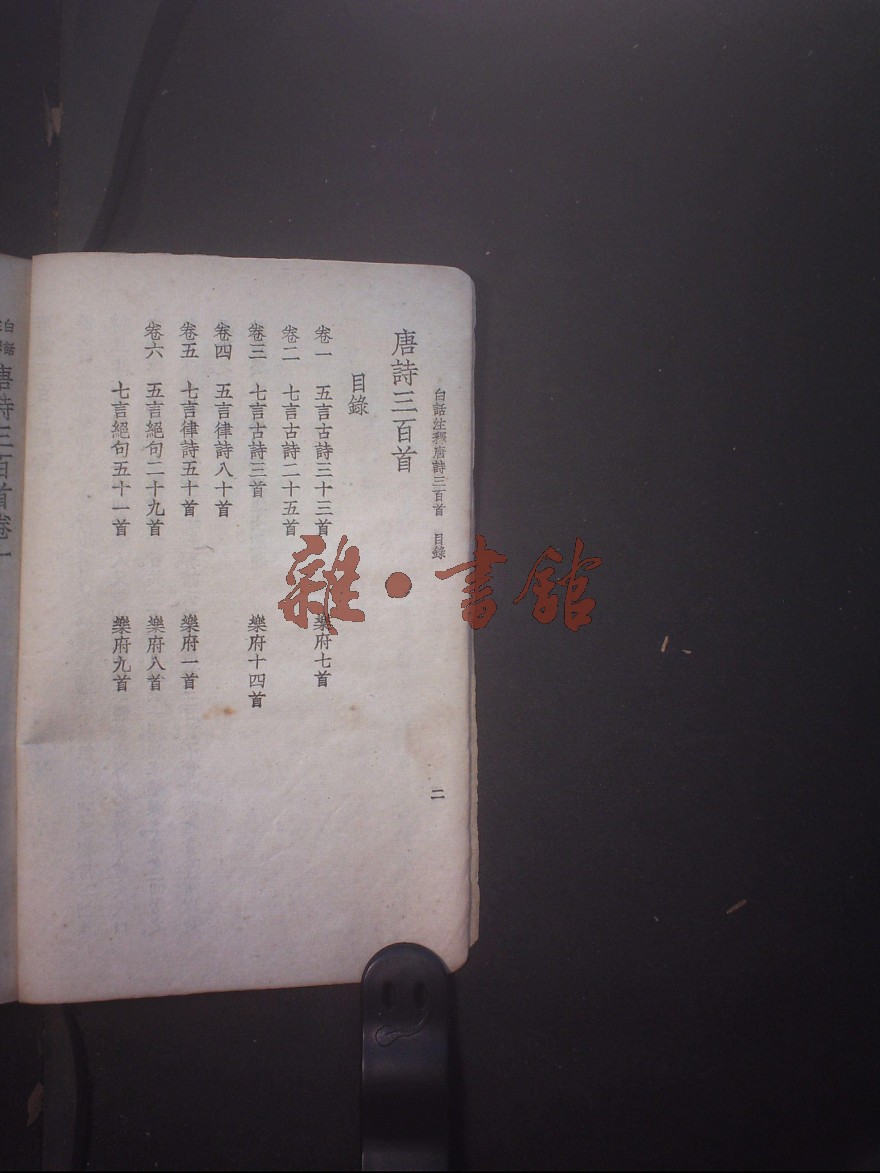 白話注釋唐詩三百首 目錄
二
唐詩三百首
目錄
卷一 五言古詩三十三首 樂府七首
卷二 七言古詩二十五首
卷三 七言古詩三首 樂府十四首
卷四 五言律詩八十首
卷五 七言律詩五十首 樂府一首
卷六 五言絕句二十九首 樂府八首
七言絕句五十一首 樂府九首
白話
唐詩三百首卷一
雜·書館